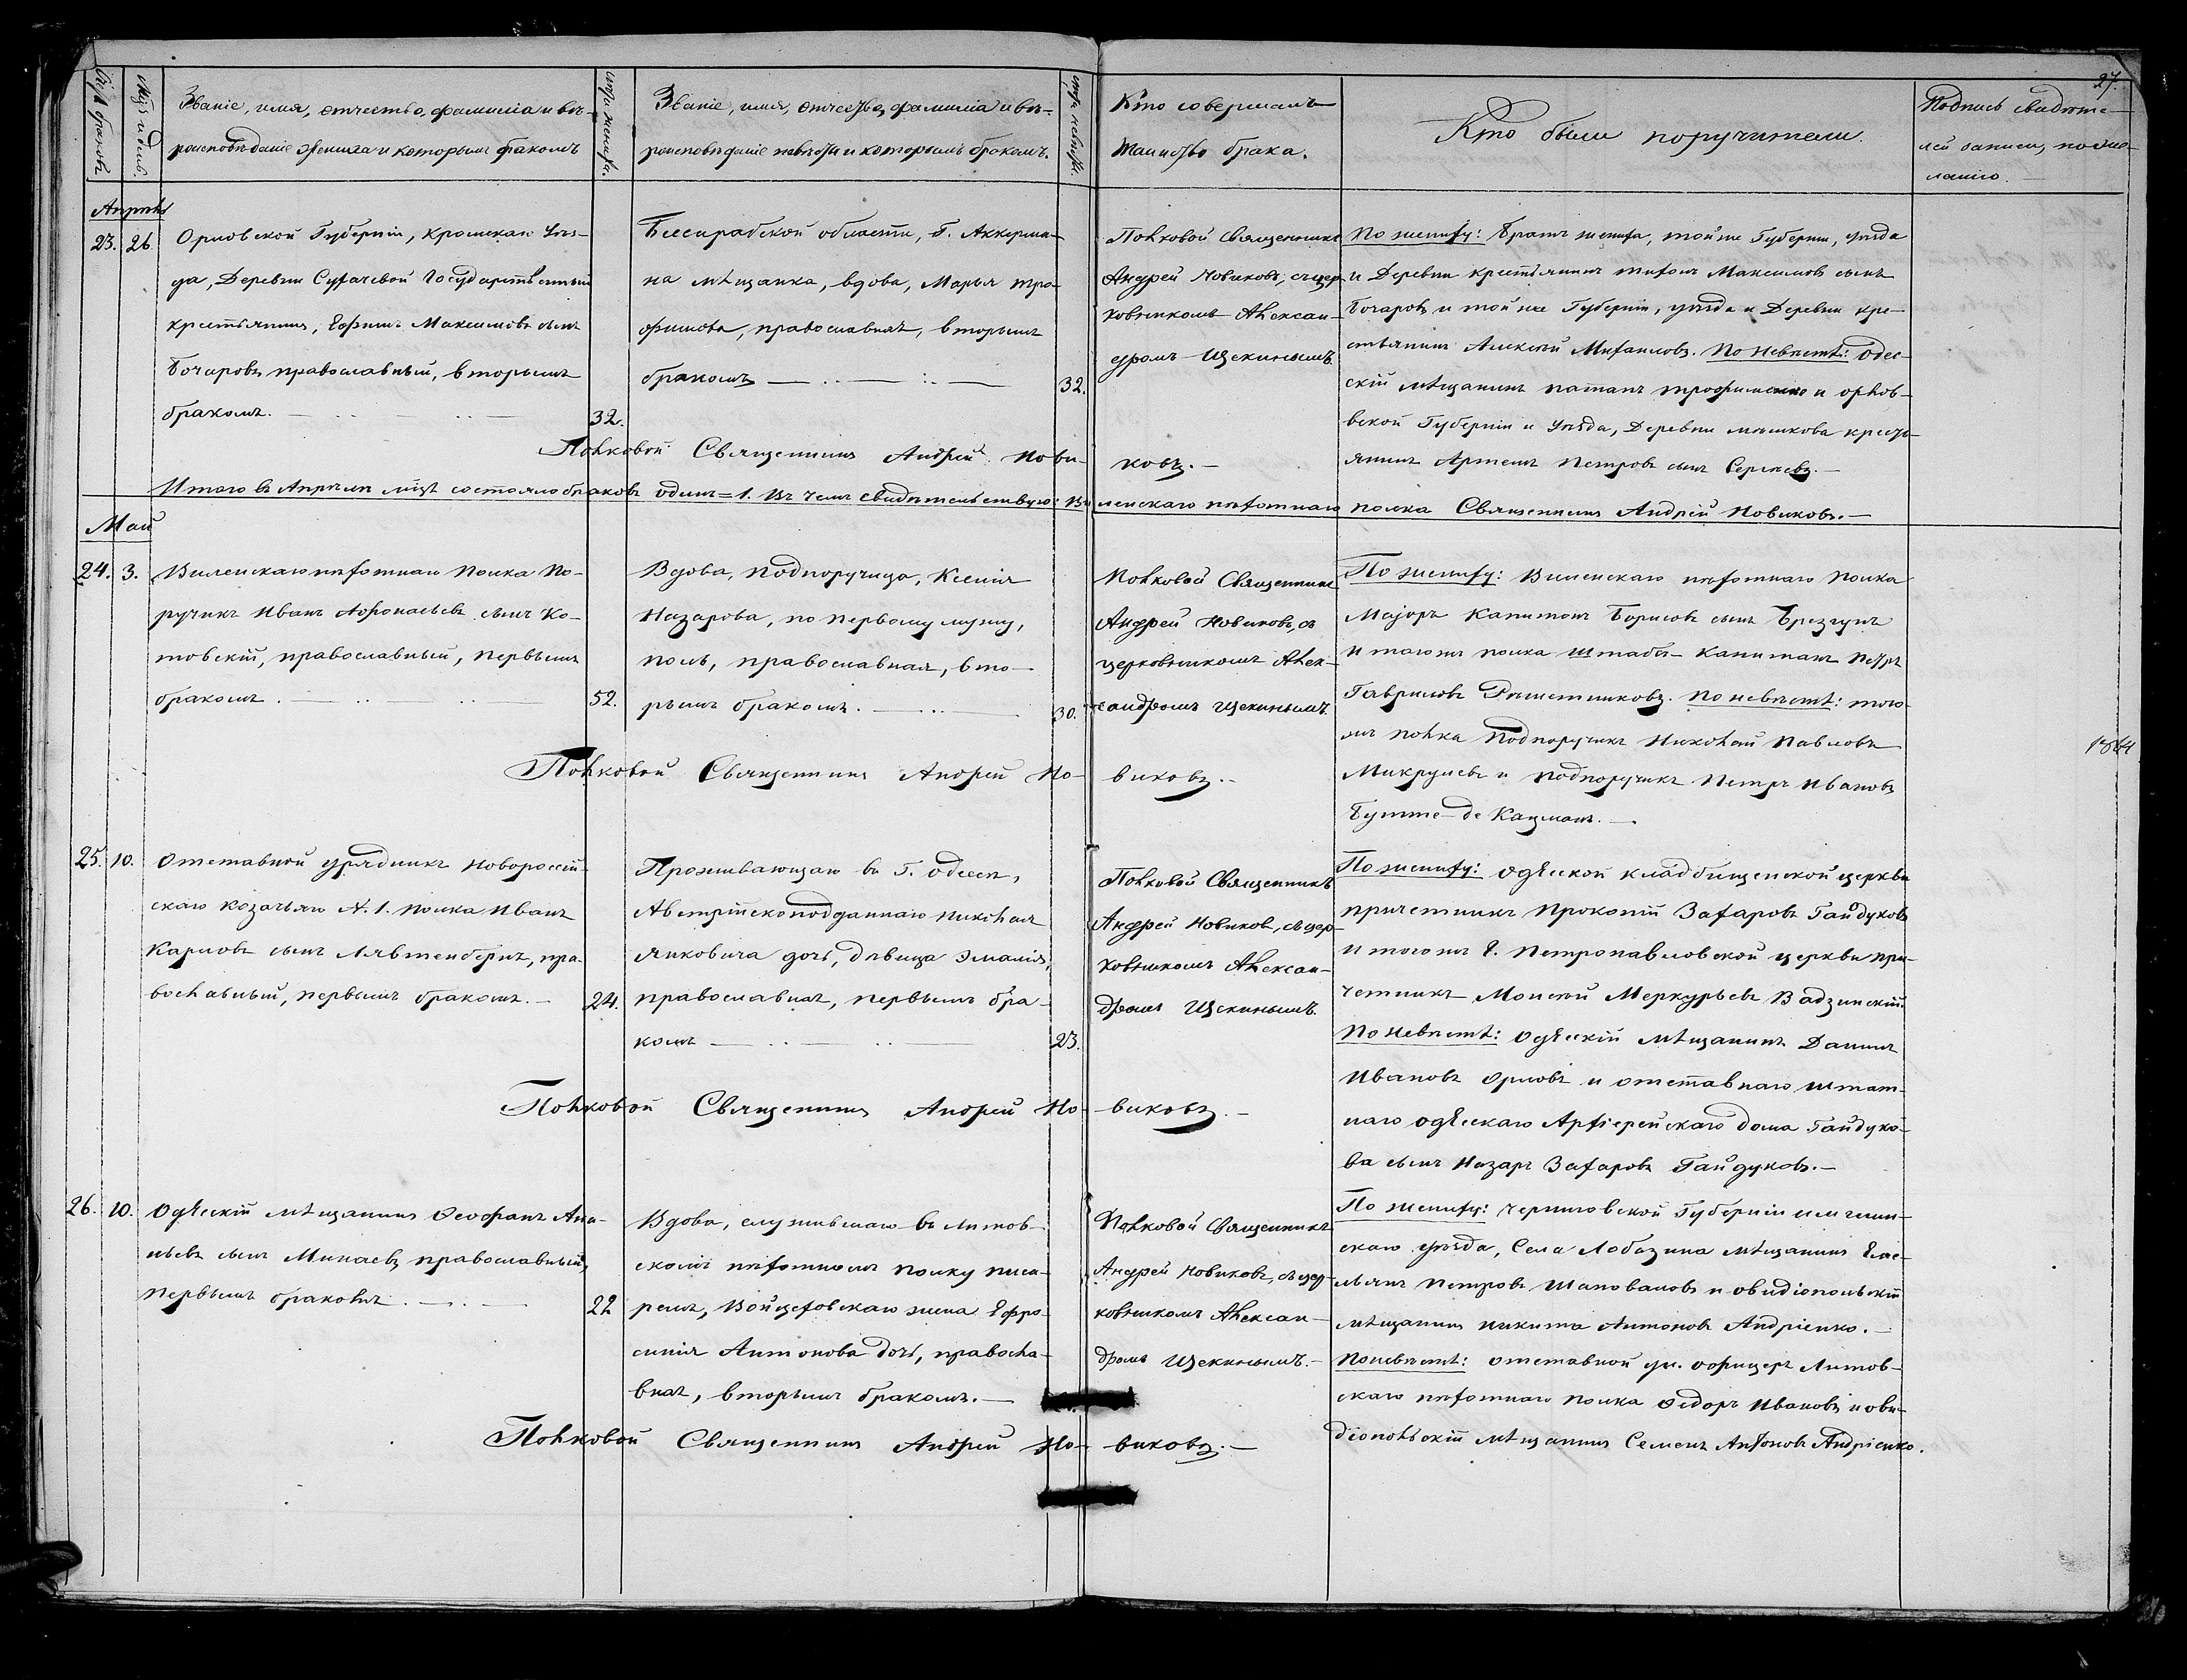 27.
Счетъ браковъ
Мѣс. и день.
Званіе, имя, отчество, фамилія и вѣ-
роисповѣданіе жениха и которымъ бракомъ
Лѣта жениха.
Званіе, имя, отчество, фамилія и вѣ-
роисповѣданіе невѣсты и которымъ бракомъ.
Лѣта невѣсты.
Кто совершалъ
таинство брака.
Кто были поручители.
Подпись свидѣте-
лей записи, по же-
ланію.
Апрѣль
23. 26
Орловской Губерніи, Кромскаго Уѣз-
да, Деревни Сухачевой Государственный
крестьянинъ, Ефимъ Максимовъ сынъ
Бочаровъ православный, вторымъ
бракомъ.
32.
Бессарабской области, Г. Аккерма-
на мѣщанка, вдова, Марья Тро-
фимова, православная, вторымъ
бракомъ
32.
Полковой Священникъ
Андрей Новиковъ, съ цер-
ковникомъ Алексан-
дромъ Щекинымъ.
По жениху: Братъ жениха, тойже Губерніи, уѣзда
и Деревни крестьянинъ Тихонъ Максимовъ сынъ
Бочаровъ и той же Губерніи, уѣзда и Деревни кре-
стьянинъ Алексѣй Михаиловъ. По невѣстѣ: Одес-
скій мѣщанинъ Патапъ Трофименко и Орлов-
вской Губерніи и Уѣзда, Деревни Мѣшкова кресть-
янинъ Артемъ Петровъ сынъ Сергѣевъ.
Полковой Священникъ Андрей Нови-
ковъ.
Итого въ Апрѣлѣ мѣцѣ состояло браковъ одинъ = 1. Въ чемъ свидѣтельствую: Ви-
ленскаго пѣхотнаго полка Священникъ Андрей Новиковъ.
Май
24. 3.
Виленскаго пѣхотнаго полка По-
ручикъ Иванъ Афонасьевъ сынъ Ко-
товскій, православный, первымъ
бракомъ.
52.
Вдова, Подпоручица, Ксенія
Назарова, по первому мужу,
поль, православная, вто-
рымъ бракомъ.
30.
Полковой Священникъ
Андрей Новиковъ, съ
церковникомъ Алек-
сандромъ Щекинымъ.
По жениху: Виленскаго пѣхотнаго полка
Маіоръ Капитонъ Борисовъ сынъ Брезгунъ
и тогожъ полка Штабсъ-Капитанъ Петръ
Гавриловъ Рѣшетниковъ. По невѣстѣ: того-
жъ полка Подпоручикъ Николай Павловъ
Микрулевъ и подпоручикъ Петръ Ивановъ
Бутте-де Кацманъ.
1864
Полковой Священникъ Андрей Но-
виковъ.
25. 10.
Отставной урядникъ Новороссій-
скаго казачьяго N. 1. полка Иванъ
Карловъ сынъ Лявтенбергъ, пра-
вославный, первымъ бракомъ.
24.
Проживающаго въ Г. Одессѣ,
Австрійскоподданнаго Николая
Янковича дочь, дѣвица Эмалія,
православная, первымъ бра-
комъ
23.
Полковой Священникъ
Андрей Новиковъ, съ цер-
ковникомъ Алексан-
дромъ Щекинымъ.
По жениху: Одесской кладбищенской церкви
причетникъ Прокопій Захаровъ Гайдуковъ
и тогожъ Г. Петропавловской церкви при-
четникъ Моисей Меркурьевъ Вадзинскій.
По невѣстѣ: Одесскій мѣщанинъ Данилъ
Ивановъ Орловъ и отставнаго штат-
наго Одесскаго Архіерейскаго дома Гайдуко-
ва сынъ Назаръ Захаровъ Гайдуковъ.
Полковой Священникъ Андрей Но-
виковъ.
26. 10.
Одесскій мѣщанинъ Феофанъ Ана-
ньевъ сынъ Минаевъ, православный,
первымъ бракомъ.
22
Вдова, служившаго въ Литов-
скомъ пѣхотномъ полку писа-
ремъ, Войцеховскаго жена Ефро-
синія Антонова дочь, правосла-
вная, вторымъ бракомъ.
Полковой Священникъ
Андрей Новиковъ, съ цер-
ковникомъ Алексан-
дромъ Щекинымъ.
По жениху: Черниговской Губерніи
скаго уѣзда, Села Лобазина мѣщанинъ Еме-
льянъ Петровъ Шаповаловъ и Овидіопольскій
мѣщанинъ Никита Антоновъ Андріенко.
По невѣстѣ: отставной ун. офицеръ Литов-
скаго пѣхотнаго полка Федоръ Ивановъ и Ови-
діопольскій мѣщанинъ Семенъ Антоновъ Андріенко.
Полковой Священникъ Андрей Но-
виковъ.